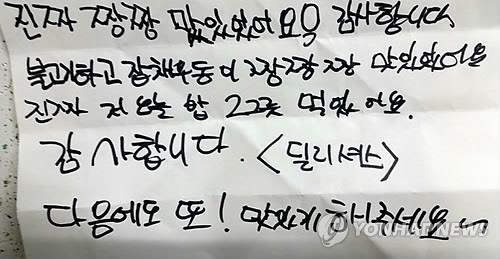 진짜 짱짱 맛있었어요옥 감사합니다.
불고기하고 잡채우동이 짱짱짱 맛있었어요
진짜 저 오늘 밥 2그릇 먹었어요.
감사합니다. <딜리셔스>
다음에도 또! 맛있게 해주세요~
YONHAP NEWS